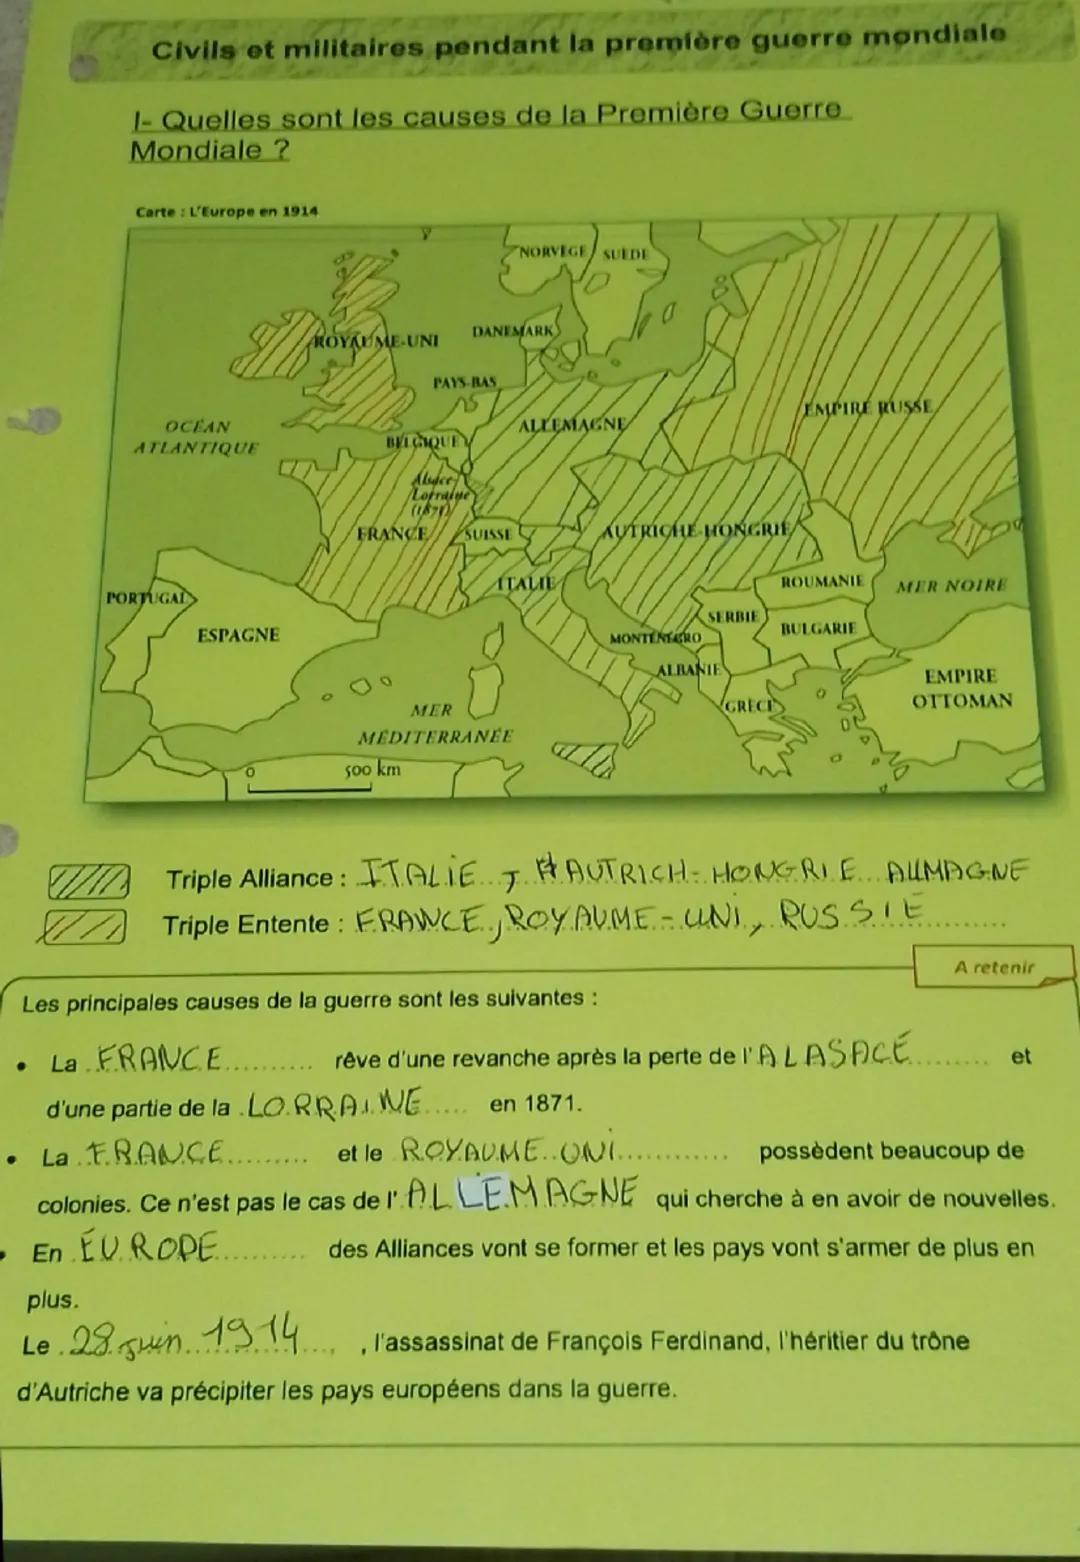 Civils et militaires pendant la première guerre mondiale
I- Quelles sont les causes de la Première Guerre
Mondiale ?
Carte : L'Europe en 1914
NORVÈGE
SUÈDE
ROYAUME-UNI
DANEMARK
PAYS-BAS
EMPIRE RUSSE
OCÉAN
ATLANTIQUE
ALLEMAGNE
BELGIQUE
Alsace-
Lorraine
(1871)
FRANCE
SUISSE
AUTRICHE-HONGRIE
ITALIE
ROUMANIE
MER NOIRE
PORTUGAL
ESPAGNE
SERBIE
BULGARIE
MONTÉNÉGRO
ALBANIE
EMPIRE
OTTOMAN
GRÈCE
MER
MÉDITERRANÉE
0
500 km
Triple Alliance : ITALIE, AUTRICH-HONGRIE ALLMAGNE
Triple Entente : FRANCE, ROYAUME-UNI, RUSSIE
A retenir
Les principales causes de la guerre sont les suivantes :
• La FRANCE rêve d'une revanche après la perte de l'ALASACE et
d'une partie de la LORRAINE en 1871.
• La FRANCE et le ROYAUME UNI possèdent beaucoup de
colonies. Ce n'est pas le cas de l'ALLEMAGNE qui cherche à en avoir de nouvelles.
• En EUROPE des Alliances vont se former et les pays vont s'armer de plus en
plus.
Le 28 juin 1914, l'assassinat de François Ferdinand, l'héritier du trône
d'Autriche va précipiter les pays européens dans la guerre.